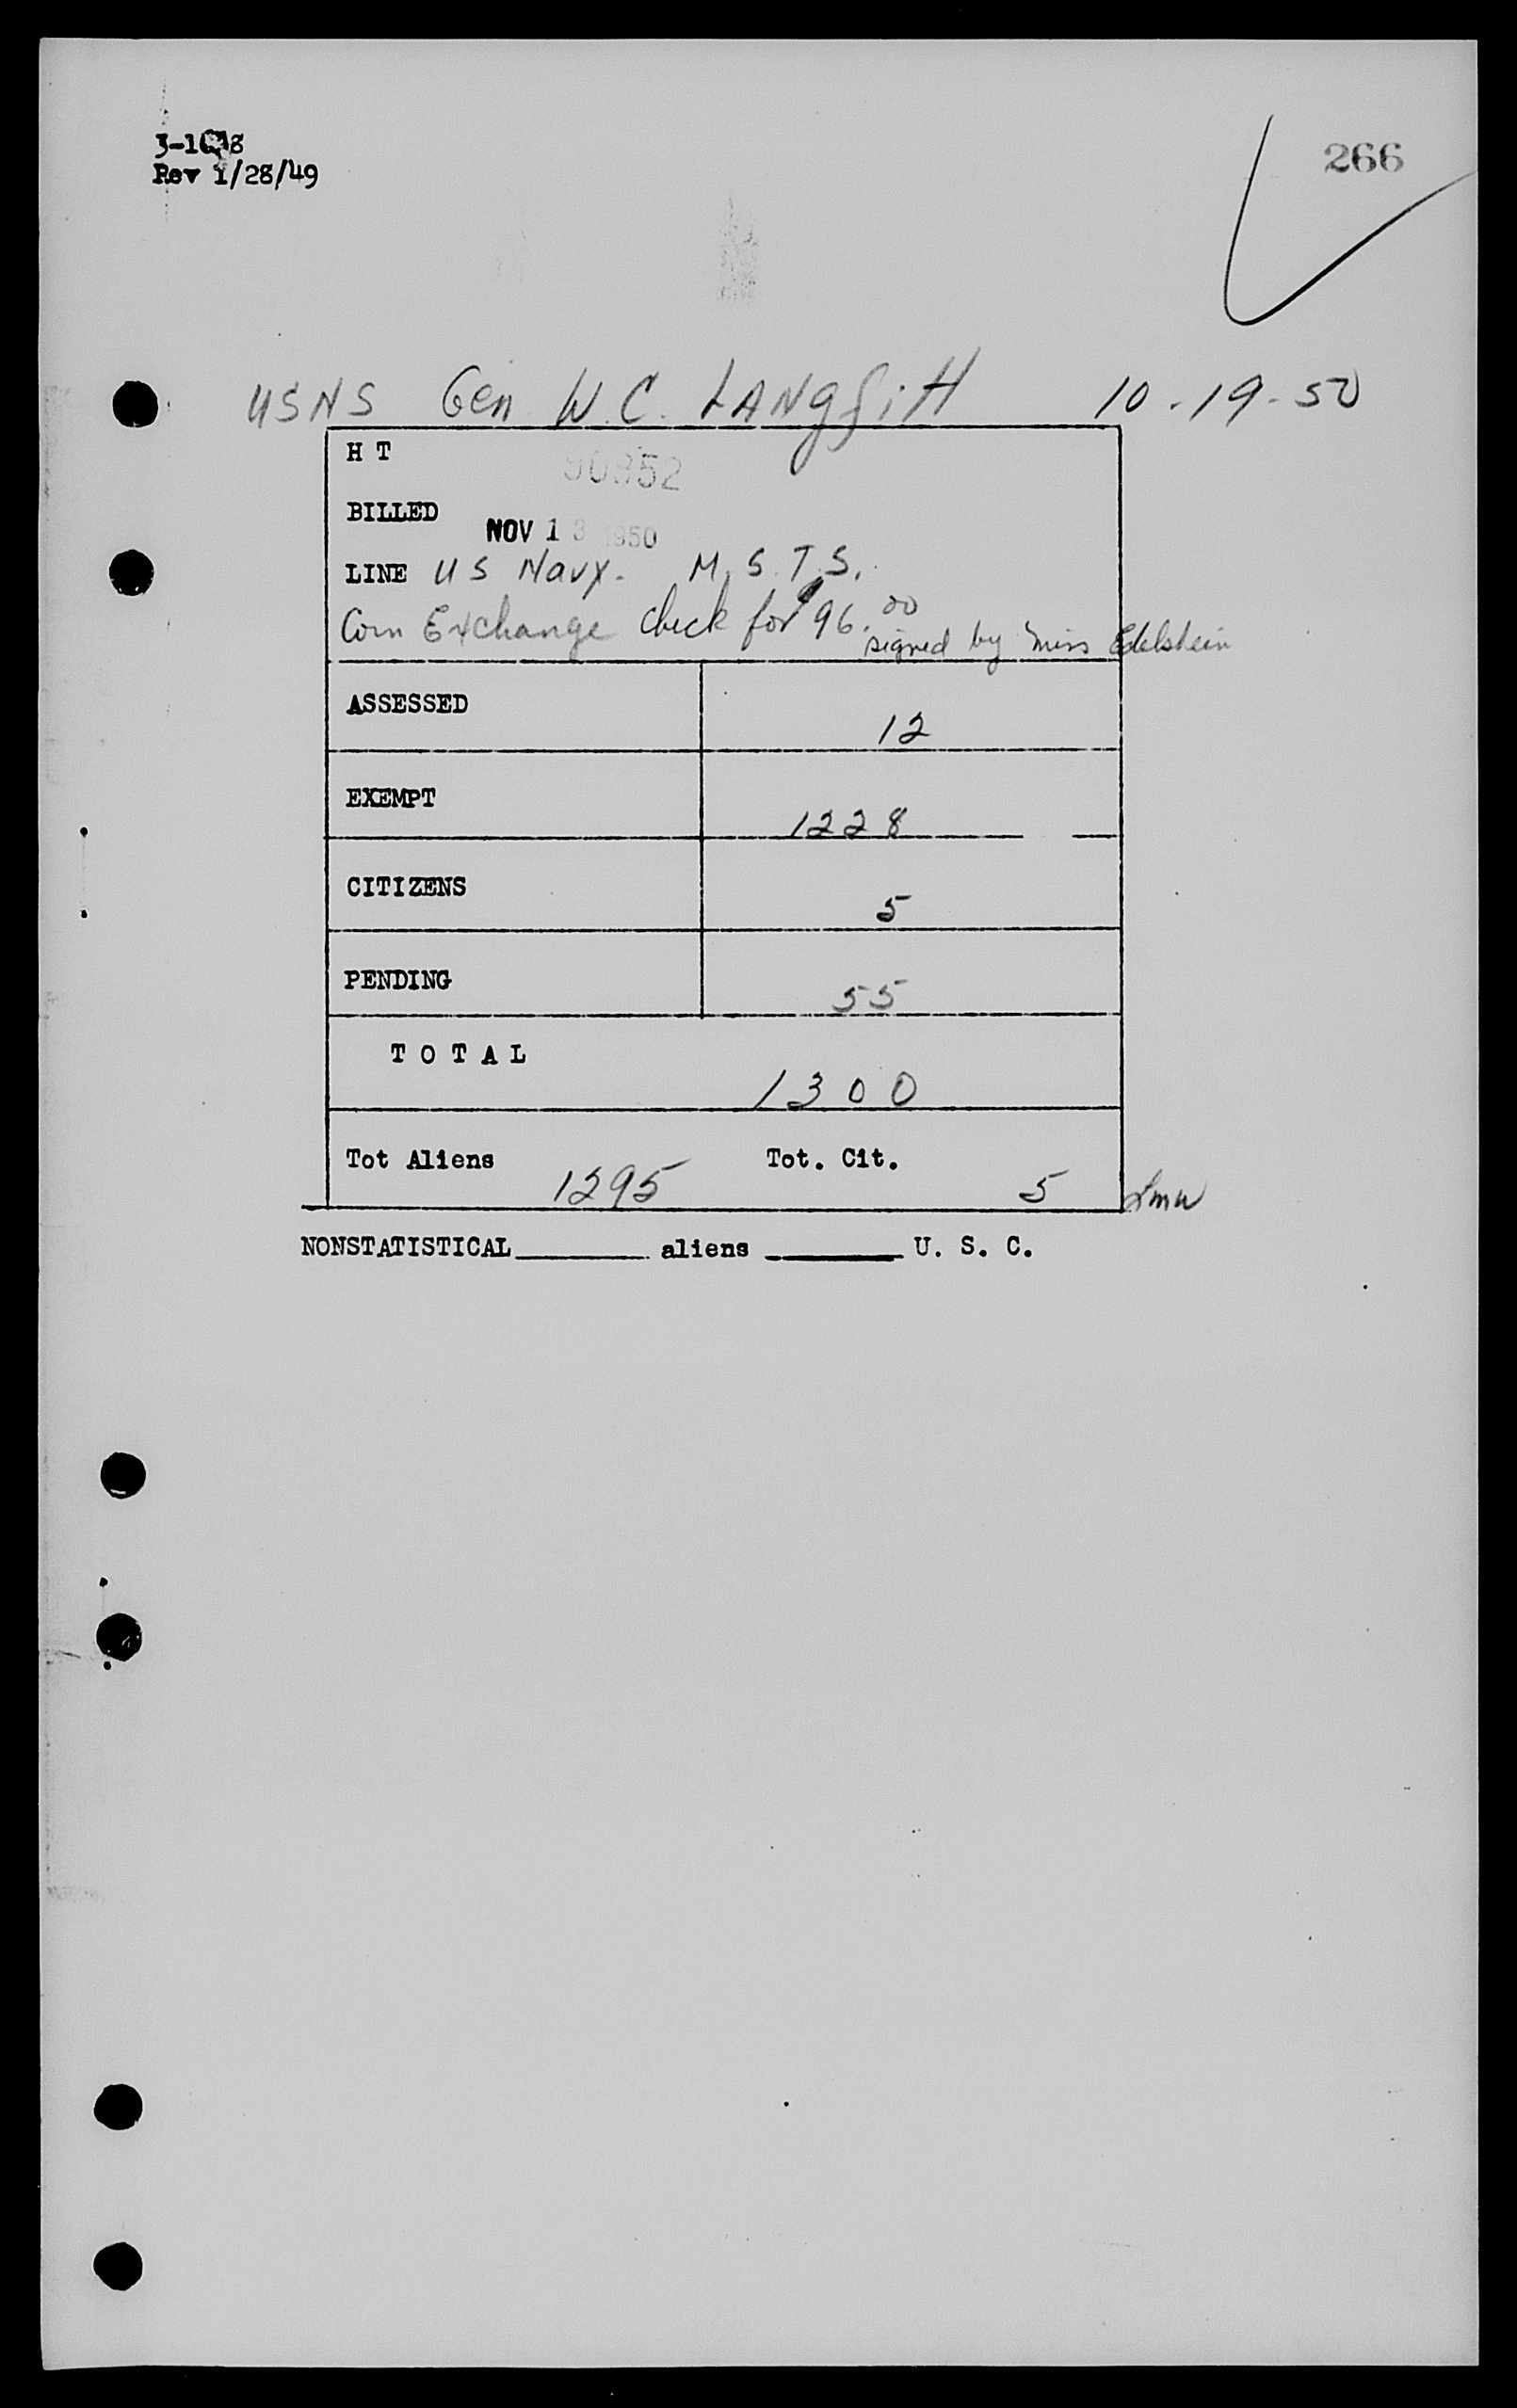 266
Rev 1/28/49
USNS Gen W.C. LANGfitt 10-19-50
H T
BILLED NOV 13 1950
LINE US Navy. M.S.T.S.
Corn Exchange check for 96.00
signed by Miss Edelstein
ASSESSED 12
EXEMPT 1228
CITIZENS 5
PENDING 55
TOTAL 1300
Tot Aliens 1295 Tot. Cit. 5
NONSTATISTICAL aliens U. S. C.